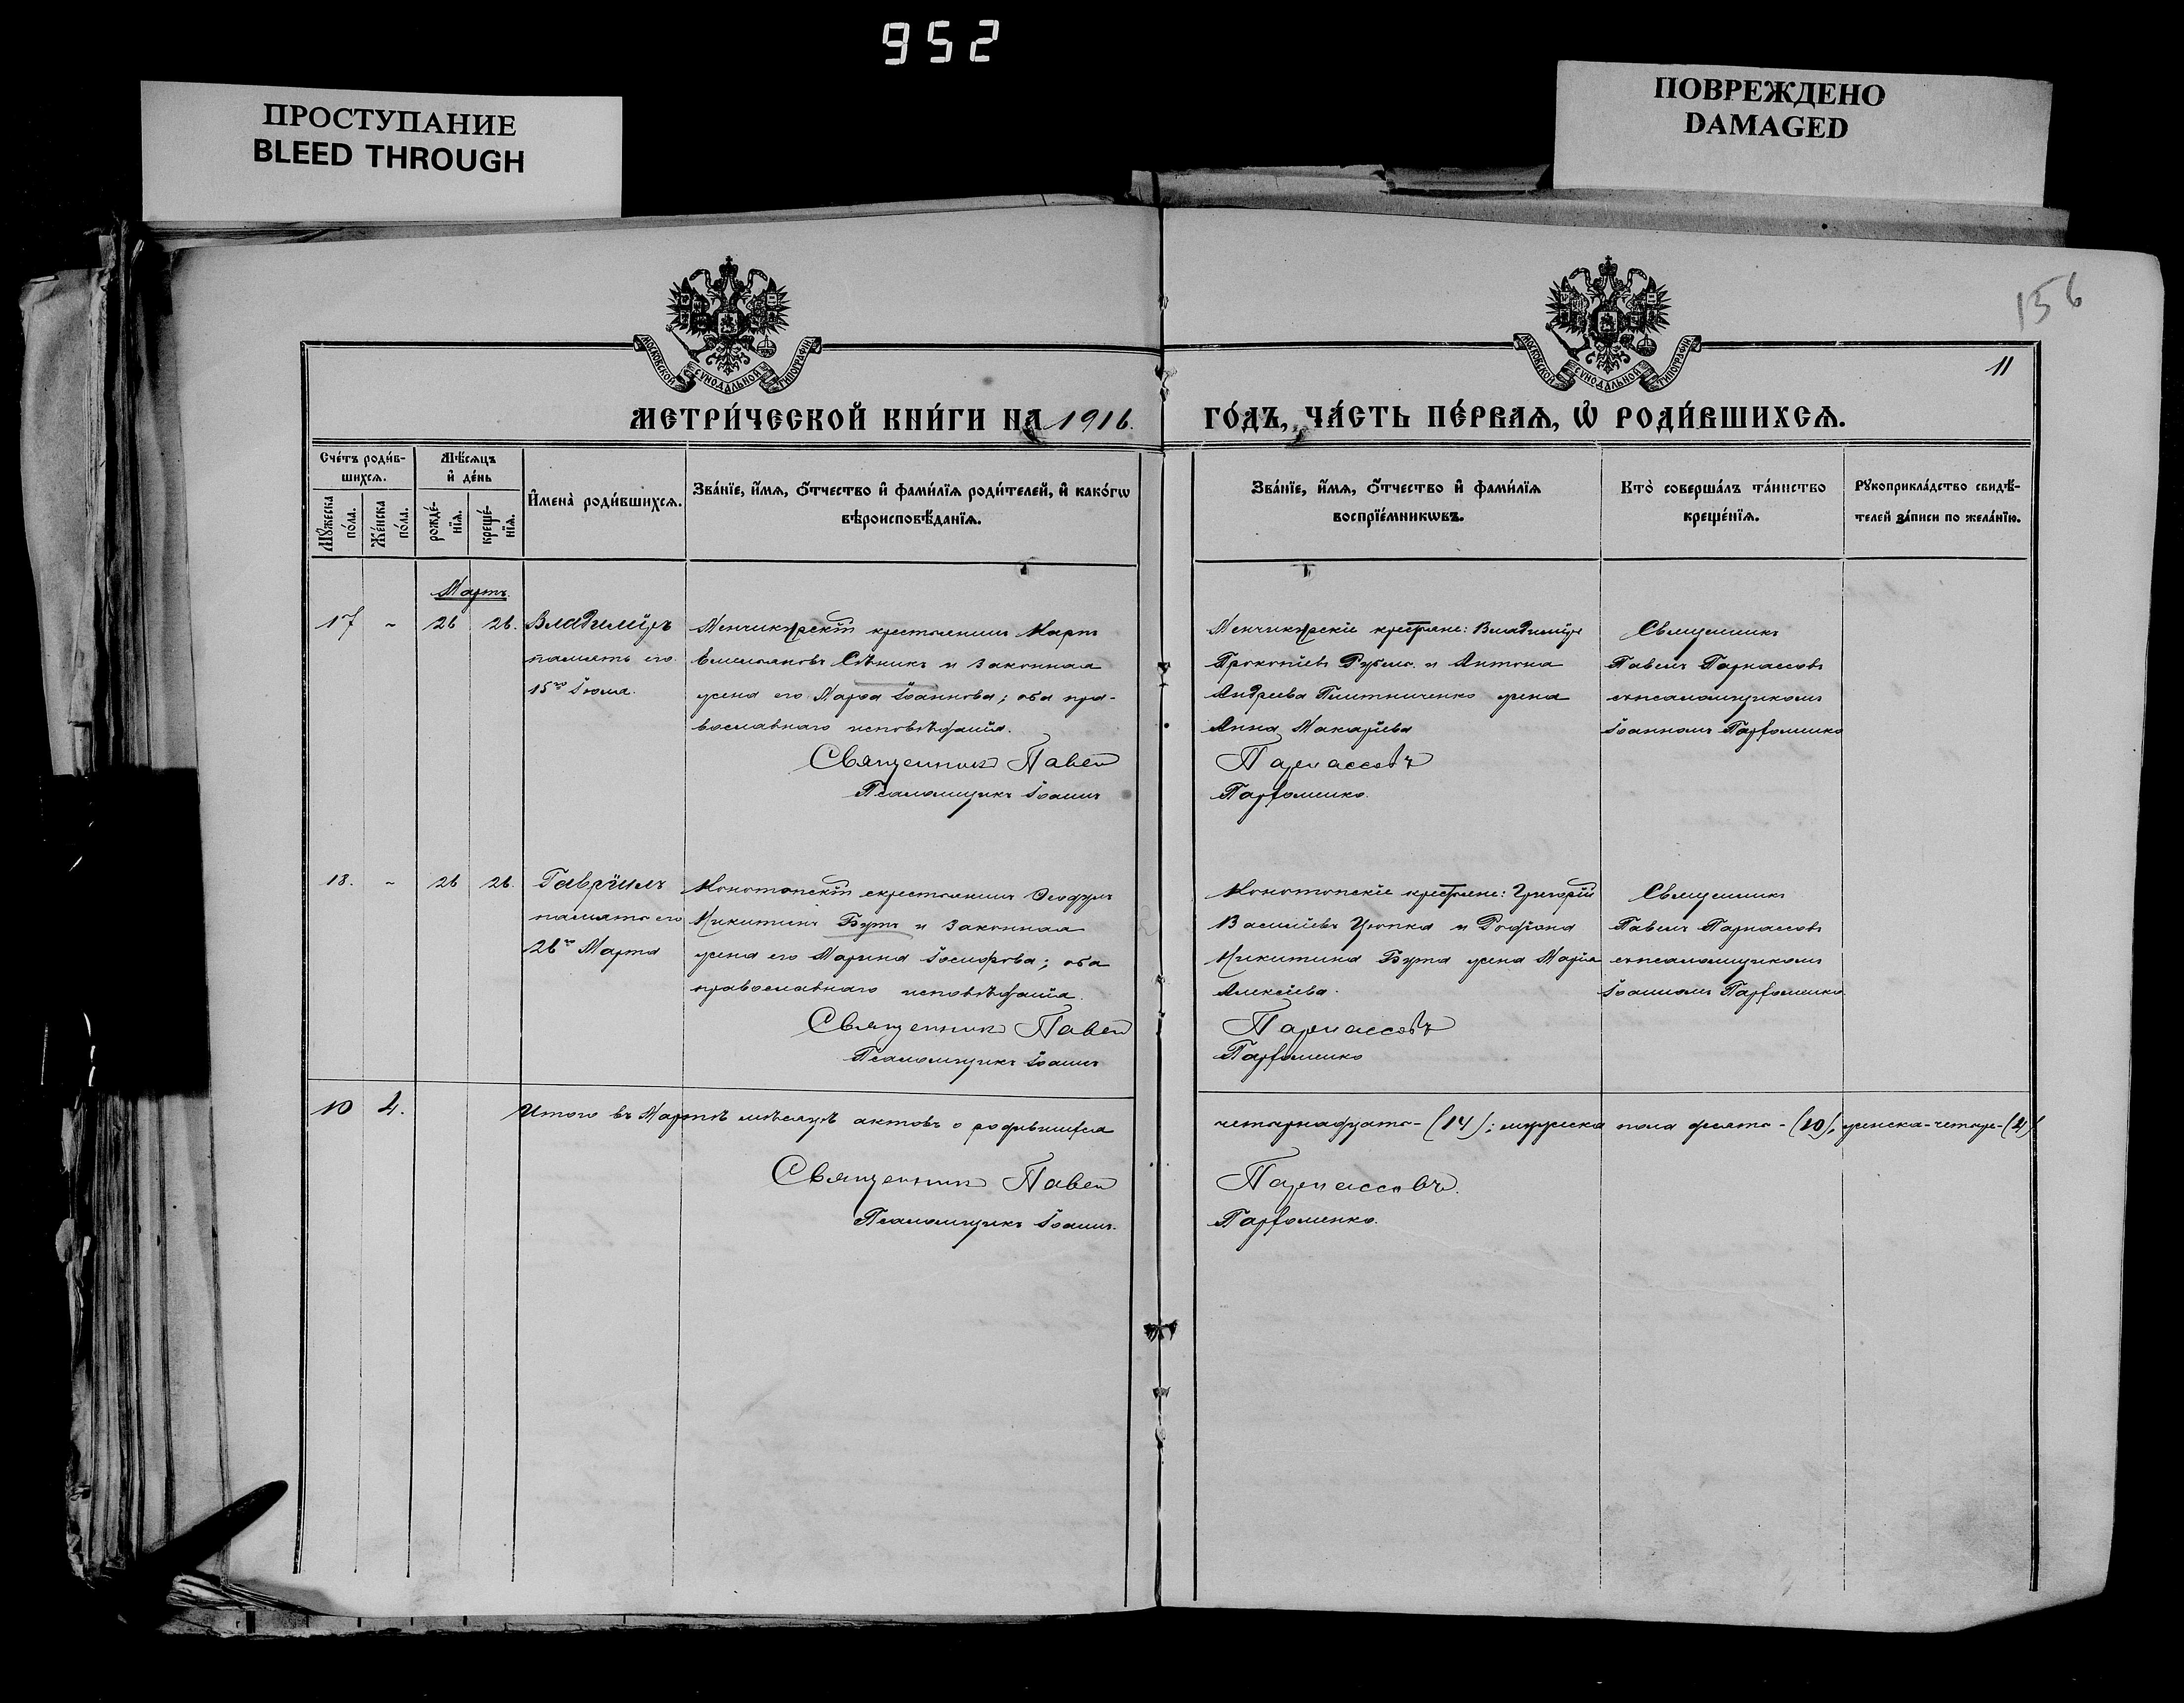 952
ПРОСТУПАНИЕ
BLEED THROUGH
ПОВРЕЖДЕНО
DAMAGED
156
11
МОСКОВСКОЙ СѴНОДАЛЬНОЙ ТИПОГРАФІИ
МОСКОВСКОЙ СѴНОДАЛЬНОЙ ТИПОГРАФІИ
МЕТРИ́ЧЕСКОЙ КНИ́ГИ НА 1916.
ГО́ДЪ, ЧА́СТЬ ПЕ́РВАѦ, Ѡ҆ РОДИ́ВШИХСѦ.
Сче́тъ роди́в-
шихсѧ.
Мꙋ́жеска по́ла.
Же́нска по́ла.
Мѣ́сѧцъ
и҆ де́нь
рожде́-нїѧ.
креще́-нїѧ.
И҆мена̀ роди́вшихсѧ.
Зва́нїе, и҆́мѧ, ѻ҆́тчество и҆ фами́лїѧ роди́телей, и҆ како́гѡ
вѣроисповѣ́данїѧ.
Зва́нїе, и҆́мѧ, ѻ҆́тчество и҆ фами́лїѧ
воспрїе́мникѡвъ.
Кто̀ соверша́лъ та́инство
креще́нїѧ.
Рꙋкоприкла́дство свидѣ́-
телей за́писи по жела́нїю.
Мартъ.
17 ~ 26 26. Владиміръ
память его
15го Іюля.
крестьянинъ Карпъ
Емельяновъ и законная
жена его Іоаннова; оба пра-
вославнаго исповѣданія.
Священникъ Павелъ
Псаломщикъ Іоаннъ
крестьяне: Владиміръ
Прокопіевъ и Антона
Андреева жена
Анна Макаріева
Парнассовъ
Парфоменко.
Священникъ
Павелъ Парнассовъ
съ псаломщикомъ
Іоанномъ Парфоменко
18. ~ 26 26. Гавріилъ
память его
26го Марта
Конотопскій крестьянинъ Ѳеодоръ
Никитинъ Бутъ и законная
жена его Марина Іосифова; оба
православнаго исповѣданія.
Священникъ Павелъ
Псаломщикъ Іоаннъ
Конотопскіе крестьяне: Григорій
Василіевъ Цюпка и Родіона
Никитина Бута жена Марія
Алексіева.
Парнассовъ
Парфоменко
Священникъ
Павелъ Парнассовъ
съ псаломщикомъ
Іоанномъ Парфоменко
10 4. Итого въ Мартѣ мѣсяцѣ актовъ о родившихся
четырнадцать - (14); мужеска пола десять - (10), женска - четыре - (4)
Священникъ Павелъ
Псаломщикъ Іоаннъ.
Парнассовъ.
Парфоменко.